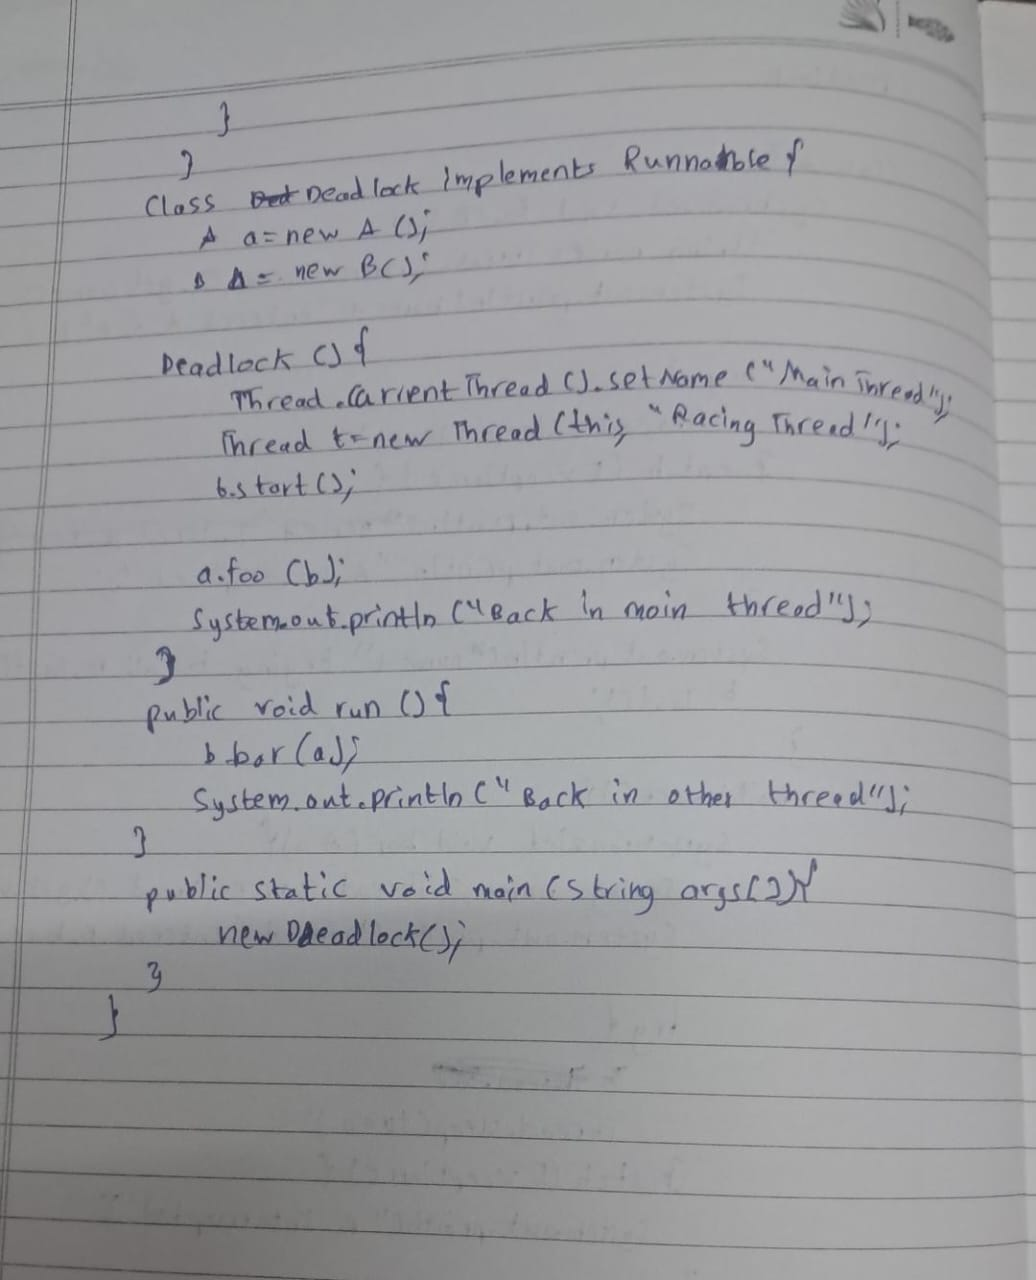 }
}
Class Deadlock implements Runnable {
A a = new A ();
B b = new B();
Deadlock () {
Thread.CurrentThread ().setName ("Main Thread");
Thread t = new Thread (this, "Racing Thread");
t.start ();
a.foo (b);
System.out.println ("Back in main thread");
}
public void run () {
b bar (a);
System.out.println ("Back in other thread");
}
public static void main (String args[]){
new Deadlock();
}
}